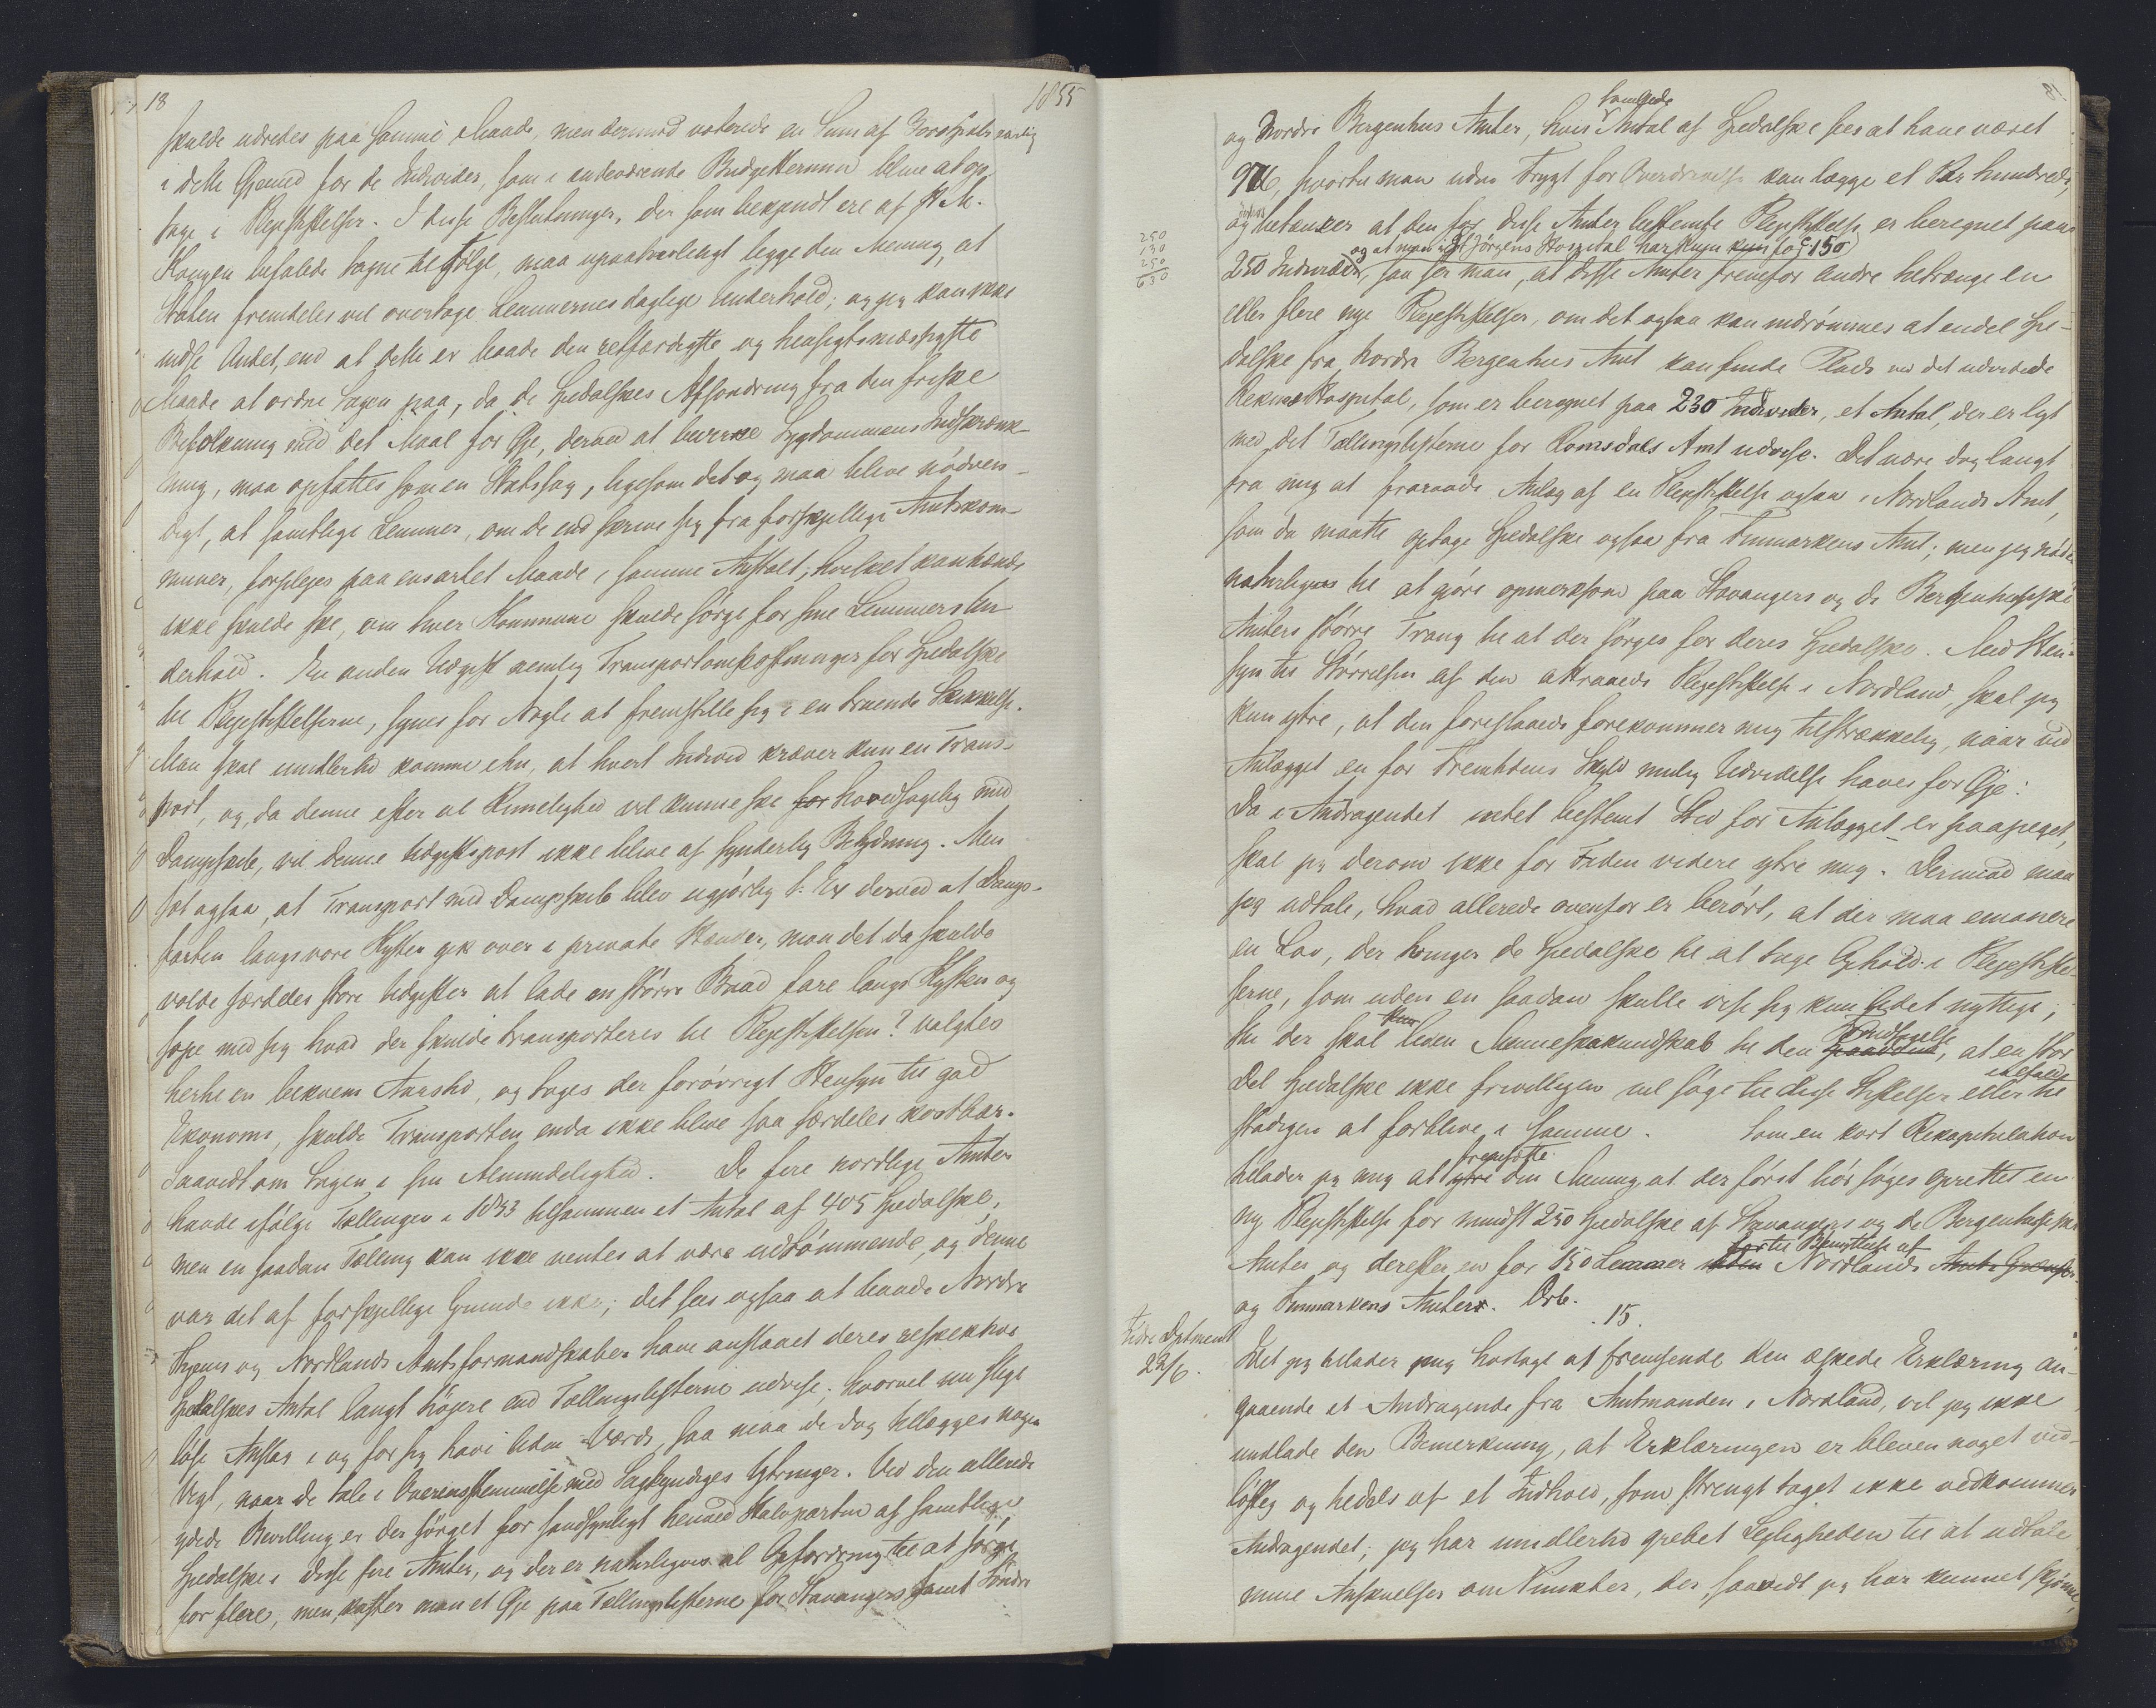 18
1855
skulde udredes paa samme Maade, men dermod voterede en Sum af
i dette Øiemed for de Individer, som i indeværende Budgettermin bleve at op-
tage i Plejestiftelser. I disse Beslutninger, der som bekjendt ere af H. M.
Kongen befalede tagne tilfølge, maa upaatvivleligt ligge den Mening, at
Staten fremdeles vil overtage Lemmernes daglige Underhold; og jeg kan ikke
indse Andet, end at dette er baade den retfærdigste og hensigtsmæssigste
Maade at ordne Sagen paa, da de Spedalskes Afsondring fra den friske
Befolkning med det Maal for Øje, derved at bevirke Sygdommens Indskrænk-
ning, maa opfattes som en Statssag, ligesom det og maa blive nødven-
digt, at samtlige Lemmer, om de end skrive sig fra forskjellige Amtskom-
muner, forpleies paa ensartet Maade i samme Anstalt, hvilket kanhænde
ikke skulde ske, om hver Kommune skulde sørge for sine Lemmers Un-
derhold. En anden Udgift nemlig Transportomkostninger for Spedalske
til Plejestiftelserne, synes for Nogle at fremstille sig i en truende Skikkelse.
Man skal imidlertid komme ihu, at hvert Individ kræver kun en Trans-
port, og, da denne efter al Rimelighed vil kunne ske for hovedsagelig med
Dampskib, vil denne Udgiftspost ikke blive af synderlig Betydning. Men
sæt ogsaa, at Transport med Dampskib blev ugjørlig t. Ex derved at Damps-
farten langs vore Kyster gik over i private Hænder, mon det da skulde
volde særdeles store Udgifter at lade en større Baad fare langs Kysten og
tage med sig hvad der skulde transporteres til Plejestiftelsen? valgtes
hertil en bekvem Aarstid, og toges der forøvrigt Hensyn til god
Økonomi, skulde Transporten enda ikke blive saa særdeles kostbar.
Saavidt om Sagen i sin Almindelighed. De fire nordlige Amter
havde ifølge Tællingen i 1853 tilsammen et Antal af 405 Spedalske,
men en saadan Tælling kan ikke ventes at være udtømmende, og denne
var det af forskjellige Grunde ikke; det sees ogsaa at baade Nordre
Thjems og Nordlands Amtsformandskaber have anslaaet deres respektive
Spedalskes Antal langt højere end Tællingslisterne udvise; hvorvel nu slige
løse Anslag i og for sig have liden Værd, saa maa de dog tillægges nogen
Vegt, naar de tale i Overensstemmelse med Sagkyndiges Ytringer. Ved den allerede
ydede Bevilling er der sørget for sandsynligt henved Halvparten af samtlige
Spedalske i disse fire Amter, og der er naturligvis al Opfordring til at sørge
for flere, men, kaster man et Øje paa Tællingslisterne for Stavangers samt Søndre
og Nordre Bergenhus Amter, hvis samlede Antal af Spedalske sees at have været
976, hvortil man uden Frygt for Overdrivelse kan lægge et Par hundrede,
og betænker at den for disse Amter bestemte Plejestiftelse er beregnet paa
250
130
250
630
og at man i St Jørgens Hospital har Rum kun for 150
250 Individer, saa ser man, at disse Amter fremfor andre betrænge en
eller flere nye Plejestiftelser, om det ogsaa kan indrømmes at endel Spe-
dalske fra Nordre Bergenhus Amt kan finde Plads ved det udvidede
Reknæs Hospital, som er beregnet paa 230 Individer, et Antal, der er ligt
med det Tællingslisterne for Romsdals Amt udvise. Det være dog langt
fra mig at fraraade Anlæg af en Plejestiftelse ogsaa i Nordlands Amt,
som da maatte optage Spedalske ogsaa fra Finmarkens Amt; men jeg nødes
naturligvis til at gjøre opmerksom paa Stavangers og de Bergenhusske
Amters større Trang til at der sørges for deres Spedalske. Med Hen-
syn til Størrelsen af den attraaede Plejestiftelse i Nordland, skal jeg
kun ytre, at den foreslaaede forekommer mig tilstrækkelig, naar ved
Anlægget en for Fremtidens Skyld mulig Udvidelse haves for Øje.
Da i Andragendet intet bestemt Sted for Anlægget er paapeget,
skal jeg derom ikke for Tiden videre ytre mig. Derimod maa
jeg udtale, hvad allerede ovenfor er berørt, at der maa emanere
en Lov, der tvinger de Spedalske til at tage Ophold i Plejestiftel-
serne, som uden en saadan skulle vise sig kun lidet nyttige;
thi der skal kun liden Menneskekundskab til den Forudsigelse, at en stor
Del Spedalske ikke frivilligen vil søge til disse Stiftelser eller til
stadigen at forblive i samme. Som en kort Rekapitulation
tillader jeg mig at ytre fremsætte den Mening, at der først bør søges oprettet en
ny Plejestiftelse for mindst 250 Spedalske af Stavangers og de Bergenhusske
Amter, og derefter en for 150 Lemmer uden for til Benyttelse af Nordlands Amts Grænser
og Finmarkens Amter. Drb.
15.
Indre Dptment
22/6.
Idet jeg tillader mig hoslagt at fremsende den æskede Erklæring an-
gaaende et Andragende fra Amtmanden i Nordland, vil jeg ikke
undlade den Bemerkning, at Erklæringen er bleven noget vid-
løftig og tildels af et Indhold, som strengt taget ikke vedkommer
Andragendet; jeg har imidlertid grebet Lejligheden til at udtale
mine Anskuelser om Punkter, der, saavidt jeg har kunnet skjønne,